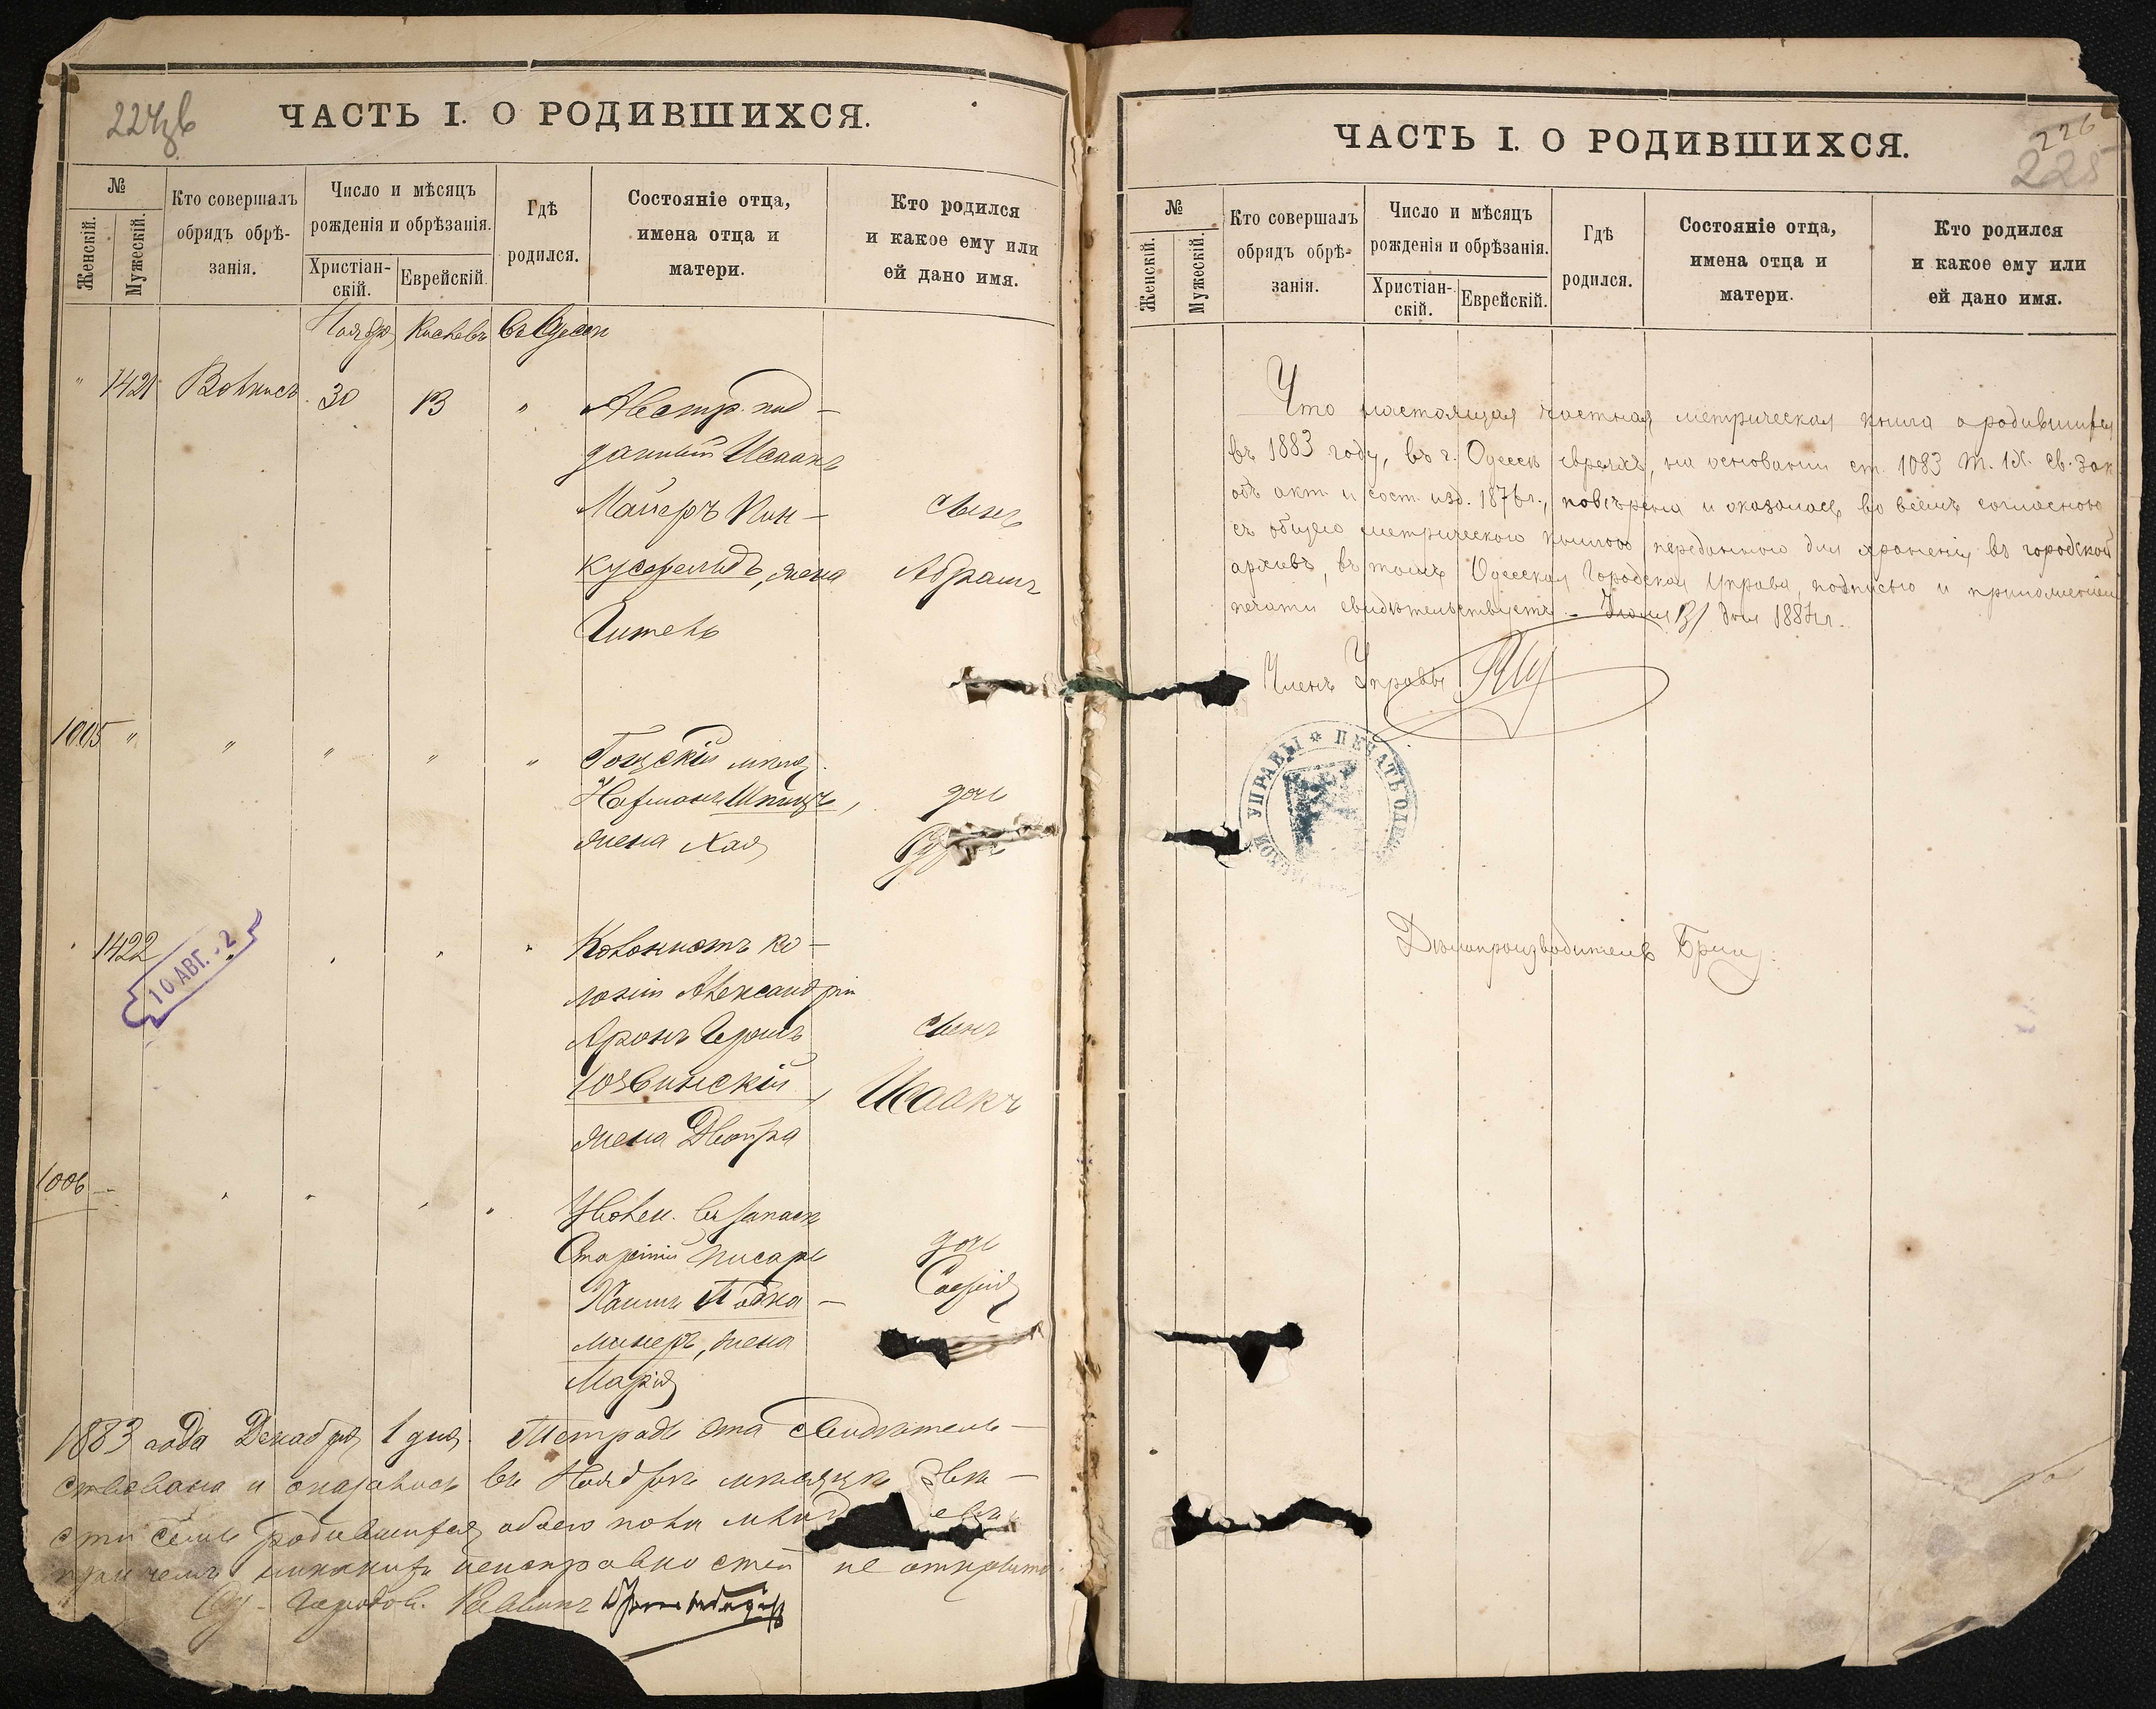 224об
ЧАСТЬ I. О РОДИВШИХСЯ.
№
Женскій.
Мужескій.
Кто совершалъ
обрядъ обрѣ-
занія.
Число и мѣсяцъ
рожденія и обрѣзанія.
Христіан-
скій.
Еврейскій.
Гдѣ
родился.
Состояніе отца,
имена отца и
матери.
Кто родился
и какое ему или
ей дано имя.
Ноября Кислевъ въ Одессѣ
" 1421 30 13 " Австр. под-
данный Исаакъ
Майеръ Пин-
кусфельдъ, жена
Гитель
сынъ
Абрамъ
1005 " " " " "
жена Хая
Нафманъ Шпицъ,
дочь
1422
10 АВГ. 2
Колонистъ ко-
лоніи Александріи
Аронъ Гершъ
Юзвинскій,
жена Двойра
сынъ
Исаакъ
1006
Уволен. въ запасъ
Старшій писарь
Хаимъ Подка-
минеръ, жена
Марія
дочь
Софія
1883 года Декабря 1 дня. Тетрадь эта свидѣтель-
ствована и оказалось въ Ноябрѣ мѣсяцѣ двѣ-
сти семь родившихся обоего пола
при чемъ никакихъ неисправностей не открыто.
Городов. Раввинъ
226
225
ЧАСТЬ I. О РОДИВШИХСЯ.
№
Женскій.
Мужескій.
Кто совершалъ
обрядъ обрѣ-
занія.
Число и мѣсяцъ
рожденія и обрѣзанія.
Христіан-
скій.
Еврейскій.
Гдѣ
родился.
Состояніе отца,
имена отца и
матери.
Кто родился
и какое ему или
ей дано имя.
Что настоящая частная метрическая книга о родившихся
въ 1883 году, въ г. Одессѣ евреяхъ, на основаніи ст. 1083 т. IX. св. зак.
объ акт. и сост. изд. 1876 г., повѣрена и оказалась во всемъ согласною
съ общею метрическою книгою переданною для храненія въ городской
архивъ, въ томъ Одесская Городская Управа, подписью и приложеніемъ
печати свидѣтельствуетъ. – Іюля 13 дня 1884 г.
Членъ Управы
ПЕЧАТЬ ОДЕССКОЙ УПРАВЫ
Дѣлопроизводитель